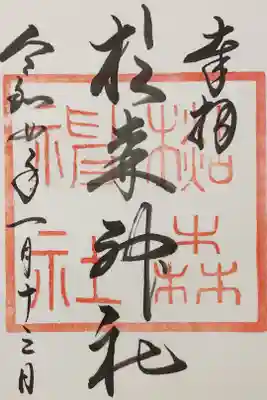 奉拝
松森神社
令和四年一月十三日
松森
神社